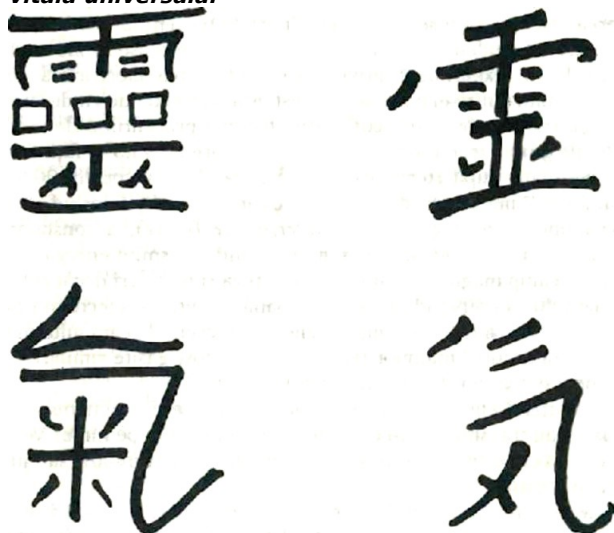 vitală universală.
靈 霊
氣 気